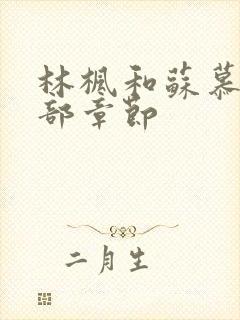 林楓和蘇慕
部章節
二月生